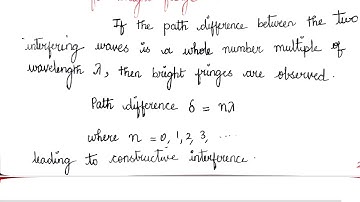 for bright fringe
If the path difference between the two
interfering waves is a whole number multiple of
wavelength λ, then bright fringes are observed.
Path difference δ = nλ
where n = 0, 1, 2, 3, ....
leading to constructive interference.